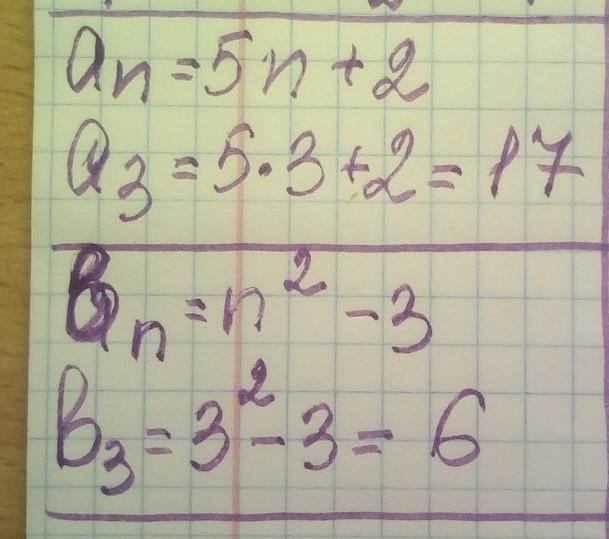 aₙ = 5n + 2
a₃ = 5 · 3 + 2 = 17
bₙ = n² - 3
b₃ = 3² - 3 = 6